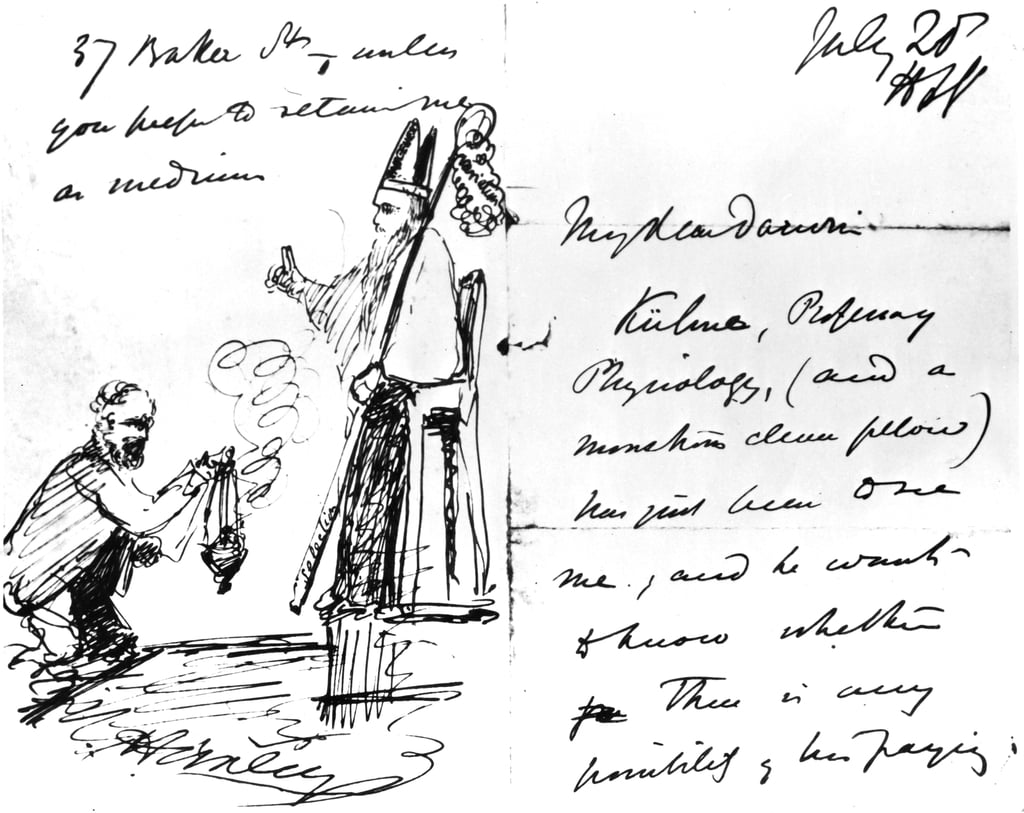 37 Baker St, unless
you prefer to retain me
as medium
July 20
My dear Darwin
Kühne, Prof. of
Physiology, (and a
monstrous clever fellow)
has just been to see
me; and he wants
to know whether
there is any
possibility of his paying